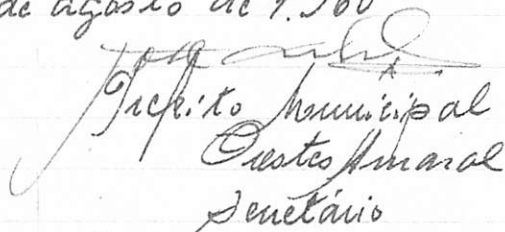 de agosto de 1.960
Prefeito Municipal
Orestes Amaral
Secretário